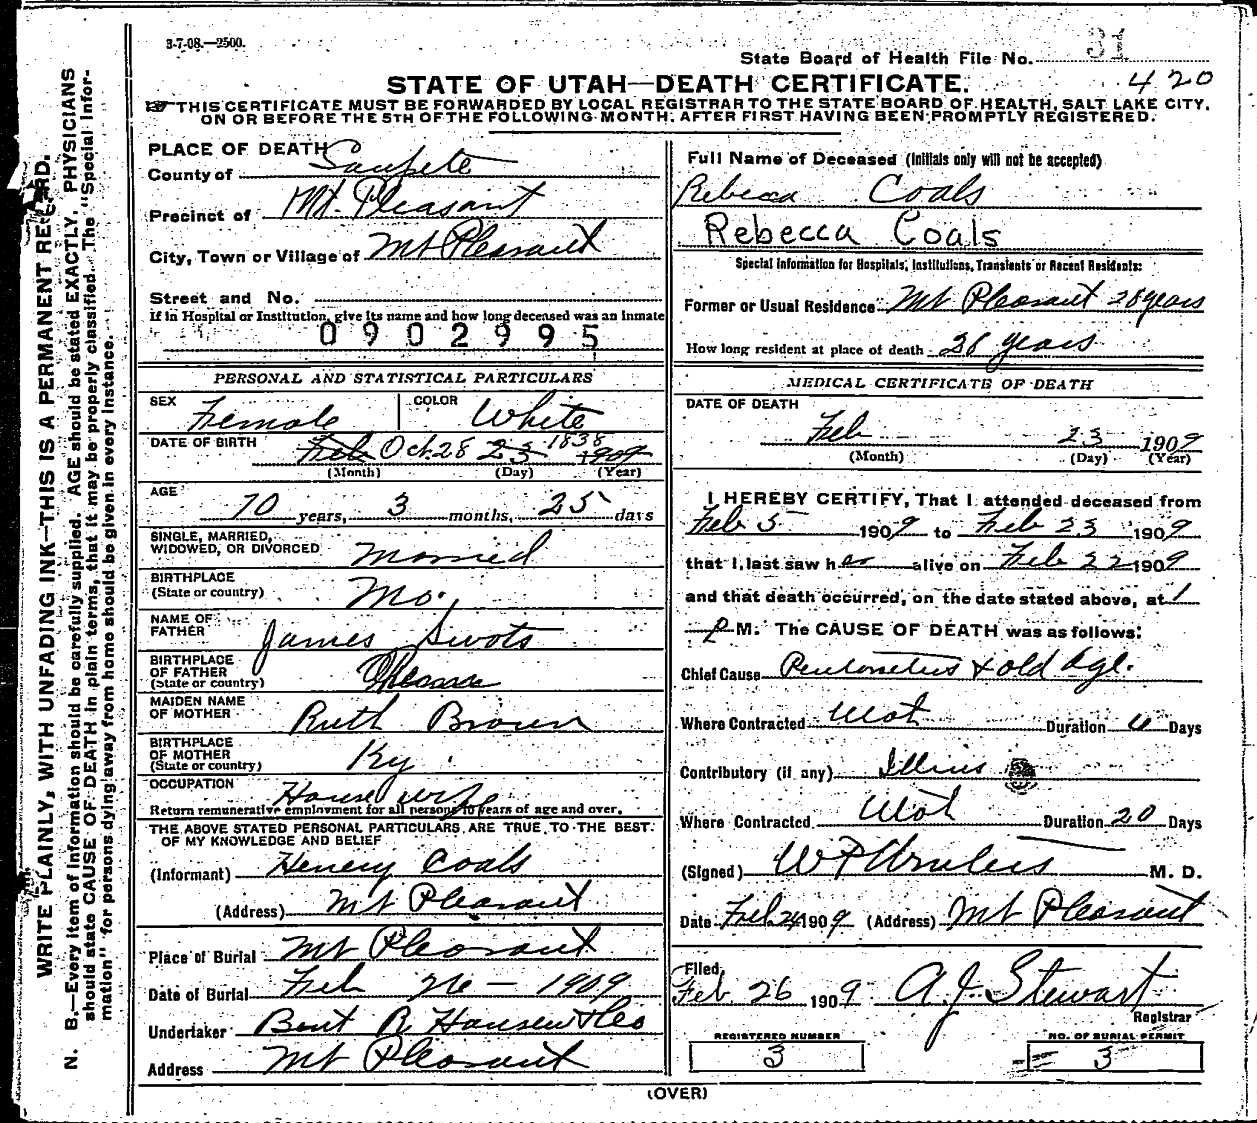 3-7-08.—2500.
State Board of Health File No. 31
420
STATE OF UTAH—DEATH CERTIFICATE.
THIS CERTIFICATE MUST BE FORWARDED BY LOCAL REGISTRAR TO THE STATE BOARD OF HEALTH, SALT LAKE CITY,
ON OR BEFORE THE 5TH OF THE FOLLOWING MONTH, AFTER FIRST HAVING BEEN PROMPTLY REGISTERED.
WRITE PLAINLY, WITH UNFADING INK—THIS IS A PERMANENT RECORD.
N. B.—Every item of information should be carefully supplied. AGE should be stated EXACTLY. PHYSICIANS
should state CAUSE OF DEATH in plain terms, that it may be properly classified. The "Special Infor-
mation" for persons dying away from home should be given in every instance.
PLACE OF DEATH
County of Sanpete
Precinct of Mt. Pleasant
City, Town or Village of Mt Pleasant
Street and No.
If in Hospital or Institution, give its name and how long deceased was an inmate
0902995
PERSONAL AND STATISTICAL PARTICULARS
SEX Female COLOR White
DATE OF BIRTH Feb Oct 28 23 1838 1909
(Month) (Day) (Year)
AGE 70 years, 3 months, 25 days
SINGLE, MARRIED,
WIDOWED, OR DIVORCED Married
BIRTHPLACE
(State or country) Mo.
NAME OF
FATHER James Swots
BIRTHPLACE
OF FATHER
(State or country)
MAIDEN NAME
OF MOTHER Ruth Brown
BIRTHPLACE
OF MOTHER
(State or country) Ky.
OCCUPATION House wife
Return remunerative employment for all persons 10 years of age and over.
THE ABOVE STATED PERSONAL PARTICULARS ARE TRUE TO THE BEST
OF MY KNOWLEDGE AND BELIEF
(Informant) Henery Coals
(Address) Mt Pleasant
Place of Burial Mt Pleasant
Date of Burial Feb 26 — 1909
Undertaker Bent R Hansen & Co
Address Mt Pleasant
Full Name of Deceased (Initials only will not be accepted)
Rebecca Coals
Rebecca Coals
Special Information for Hospitals, Institutions, Transients or Recent Residents:
Former or Usual Residence Mt Pleasant 28 years
How long resident at place of death 28 years
MEDICAL CERTIFICATE OF DEATH
DATE OF DEATH
Feb 23 1909
(Month) (Day) (Year)
I HEREBY CERTIFY, That I attended deceased from
Feb 5 1909 to Feb 23 1909
that I last saw her alive on Feb 22 1909
and that death occurred, on the date stated above, at 1
P M. The CAUSE OF DEATH was as follows:
Chief Cause & old Age.
Where Contracted Utah Duration Days
Contributory (if any)
Where Contracted Utah Duration 20 Days
(Signed) M. D.
Date Feb 24 1909 (Address) Mt Pleasant
Filed,
Feb 26 1909 A. J. Stewart
Registrar
REGISTERED NUMBER
3
NO. OF BURIAL PERMIT
3
(OVER)